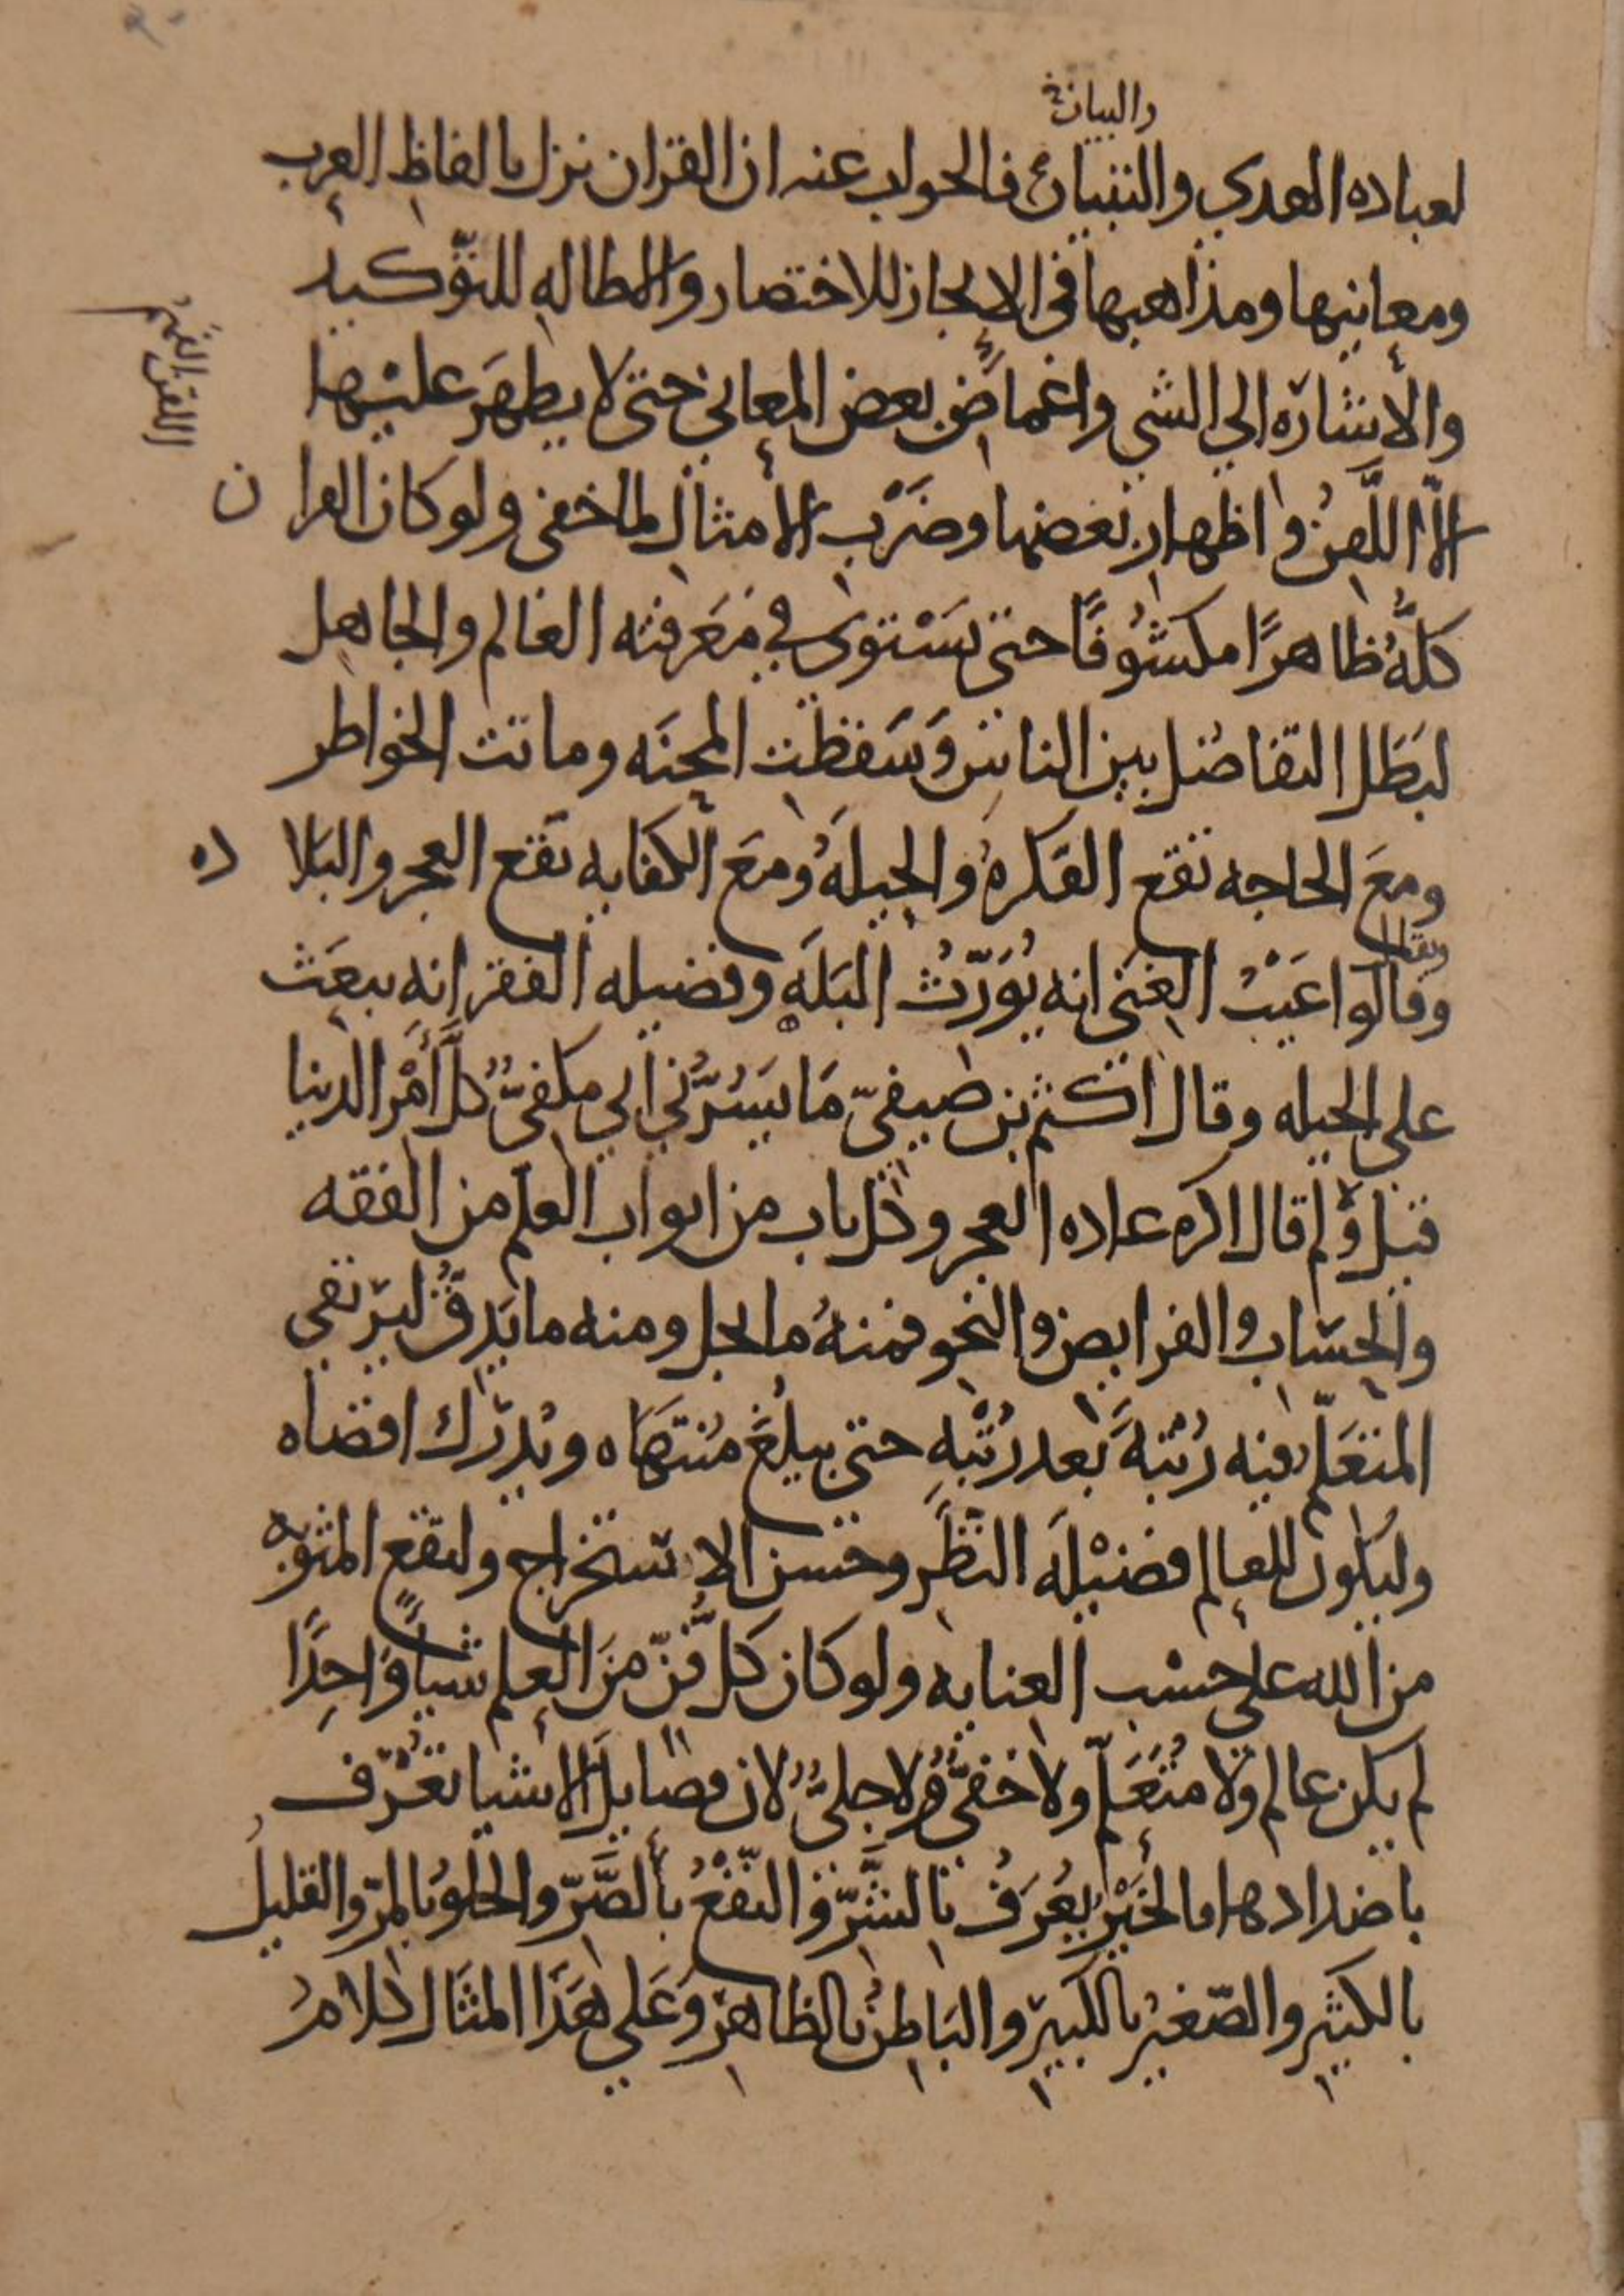 والبيان
لعباده الهدى والتبيان فالجواب عنه ان القران نزل بالفاظ العرب
ومعانيها ومذاهبها في الايجاز للاختصار والاطاله للتوكيد
والاشاره الي الشي واغماض بعض المعاني حتى لا يظهر عليها
الا اللقن واظهار بعضها وضرب الامثال لما خفى ولو كان القران
كله ظاهرًا مكشوفًا حتى يستوى في معرفته العالم والجاهل
لبطل التفاضل بين الناس وسقطت المحنه وماتت الخواطر
ومع الحاجه تقع الفكرة والحيله ومع الكفايه يقع العجز والبلاده
وقالوا عيب الغنى انه يورث البله وفضيله الفقر انه يبعث
على الحيله وقال اكثم بن صيفيّ ما يسرّني اني مكفيّ كلّ أمر الدنيا
قيل ولم قال اكره عاده العجز وكل باب من ابواب العلم من الفقه
والحساب والفرايض والنحو فمنهُ ما يجل ومنه ما يدقّ ليرتقي
المتعلّم فيه رُتبةً بعد رُتبةٍ حتى يبلغ مُنتهاه ويُدرك اقصاه
وليكون للعالم فضيلة النظر وحسن الاستخراج ولتقع المثوبه
من الله على حسب العنايه ولو كان كل فنّ من العلم شياً واحدًا
لم يكن عالم ولا متعلّم ولا خفيّ ولا جليّ لان فضايل الاشيا تعرف
باضدادها فالخير يُعرف بالشرّ والنفع بالضرّ والحلو بالمرّ والقليل
بالكثير والصّغير بالكبير والباطن بالظاهر وعلى هذا المثال كلامُ